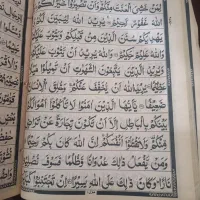 لِمَنْ خَشِيَ الْعَنَتَ مِنْكُمْ وَاَنْ تَصْبِرُوْا خَيْرٌ لَّكُمْ
وَاللّٰهُ غَفُوْرٌ رَّحِيْمٌ يُرِيْدُ اللّٰهُ لِيُبَيِّنَ
لَكُمْ وَيَهْدِيَكُمْ سُنَنَ الَّذِيْنَ مِنْ قَبْلِكُمْ وَيَتُوْبَ
عَلَيْكُمْ وَاللّٰهُ عَلِيْمٌ حَكِيْمٌ وَاللّٰهُ يُرِيْدُ اَنْ يَّتُوْبَ
عَلَيْكُمْ وَيُرِيْدُ الَّذِيْنَ يَتَّبِعُوْنَ الشَّهَوٰتِ اَنْ تَمِيْلُوْا
مَيْلًا عَظِيْمًا يُرِيْدُ اللّٰهُ اَنْ يُّخَفِّفَ عَنْكُمْ وَخُلِقَ الْاِنْسَانُ
ضَعِيْفًا يٰٓاَيُّهَا الَّذِيْنَ اٰمَنُوْا لَا تَاْكُلُوْٓا اَمْوَالَكُمْ
بَيْنَكُمْ بِالْبَاطِلِ اِلَّآ اَنْ تَكُوْنَ تِجَارَةً عَنْ تَرَاضٍ
مِّنْكُمْ وَلَا تَقْتُلُوْٓا اَنْفُسَكُمْ اِنَّ اللّٰهَ كَانَ بِكُمْ رَحِيْمًا
وَمَنْ يَّفْعَلْ ذٰلِكَ عُدْوَانًا وَّظُلْمًا فَسَوْفَ نُصْلِيْهِ
نَارًا وَكَانَ ذٰلِكَ عَلَى اللّٰهِ يَسِيْرًا اِنْ تَجْتَنِبُوْا